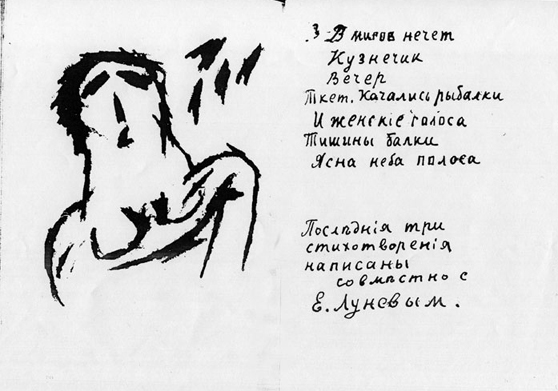 3 - В мигов нечет
Кузнечик
Вечер
Ткет. Качались рыбалки
И женскіе голоса
Тишины балки
Ясна неба полоса
Послѣднія три
стихотворенія
написаны
совмѣстно с
Е. Луневым.